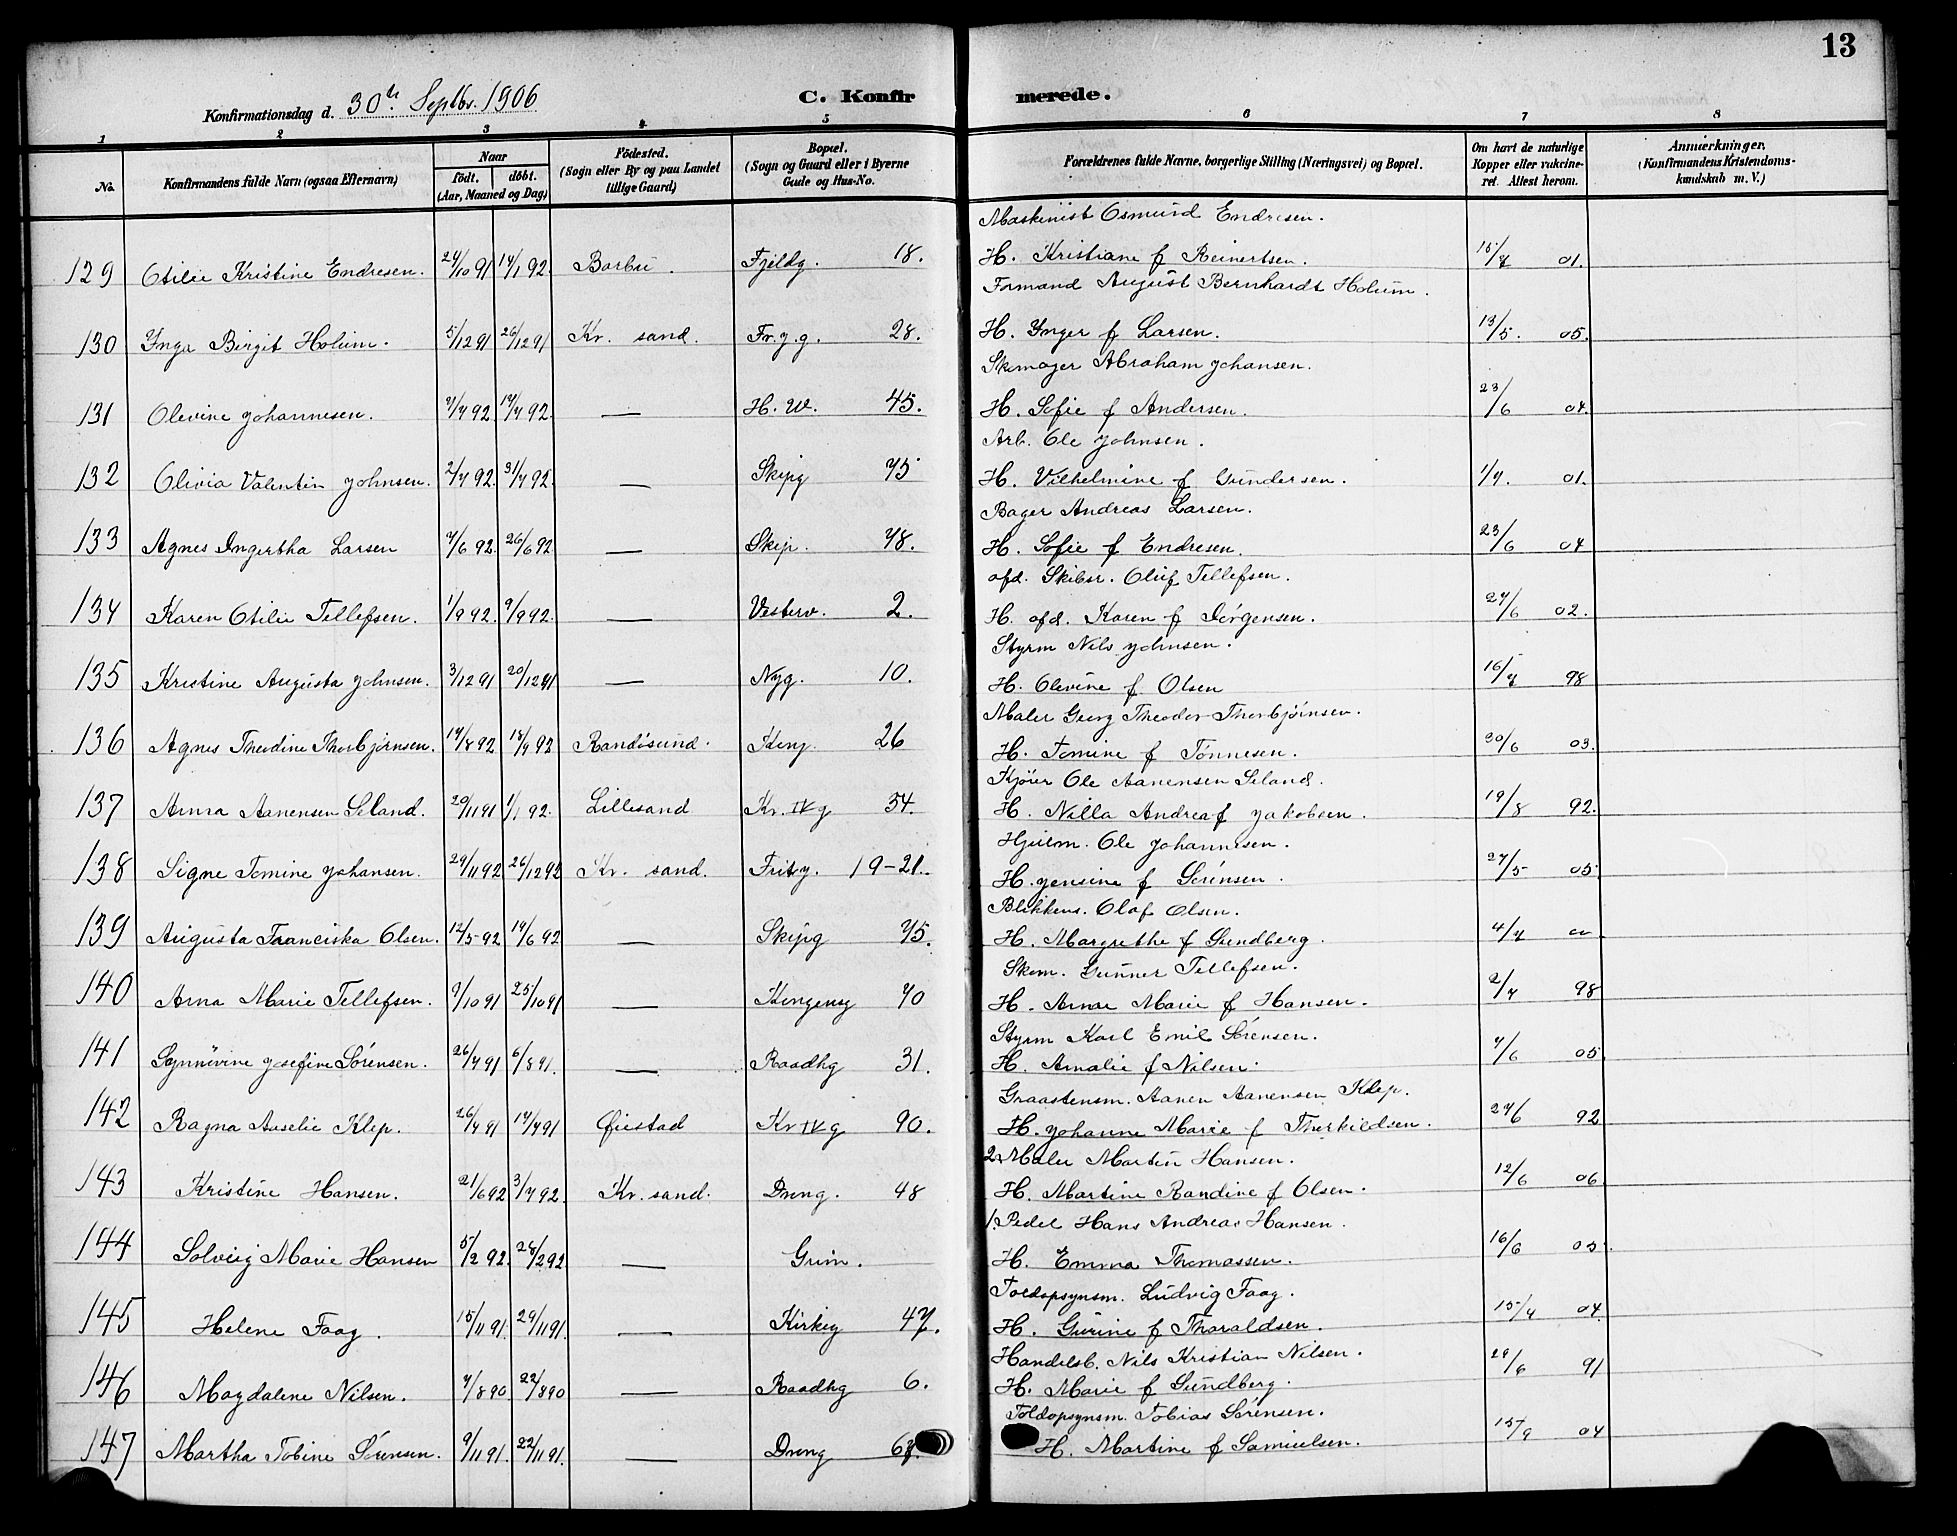 13
Konfirmationsdag d. 30te Septbr. 1906
C. Konfirmerede.
1 2 3 4 5 6 7 8
No. Konfirmandens fulde Navn (ogsaa Efternavn) Naar födt. döbt. (Aar, Maaned og Dag) Födested. (Sogn eller By og paa Landet tillige Gaard) Bopæl. (Sogn og Gaard eller i Byerne Gade og Hus-No. Forældrenes fulde Navne, borgerlige Stilling (Næringsvei) og Bopæl. Om havt de naturlige Kopper eller vakcineret. Attest herom. Anmærkninger. (Konfirmandens Kristendomskundskab m. V.)
Maskinist Osmund Endresen.
129 Otilie Kristine Endresen. 24/10 91 14/1 92. Barbu. Fjeldg. 18. H. Kristiane f Reinertsen. 15/7 01.
Formand August Bernhardt Holum.
130 Ynga Birgit Holum. 5/12 91 26/12 91 Kr. sand. Fr.y.g. 28. H. Ynger f Larsen. 13/5. 05.
Skomager Abraham Johansen.
131 Olevine Johannesen. 7/7 92. 14/7 92. — H. W. 45. H. Sofie f Andersen. 23/6 04
Arb. Ole Johnsen.
132 Olivia Valentin Johnsen. 2/7 92. 31/7 92. — Skipg 75 H. Vilhelmine f Gundersen. 1/7. 01.
Bager Andreas Larsen.
133 Agnes Ingertha Larsen 7/6 92. 26/6 92 — Skip. 78. H. Sofie f Endresen. 23/6 04
afd. Skibsr. Oluf Tellefsen.
134 Karen Otilie Tellefsen. 1/9 92. 9/9 92. — Vesterv. 2. H. afd. Karen f Jörgensen. 27/6 02.
Styrm Nils Johnsen.
135 Kristine Augusta Johnsen. 3/12 91 20/12 91 — Nyg. 10. H. Olevine f Olsen 16/7 98
Maler Georg Theodor Thorbjörnsen.
136 Agnes Theodine Thorbjörnsen. 14/8 92 18/9 92 Randösund. Kong. 26 H. Tomine f Tönnesen. 30/6 03.
Kjörer Ole Aanensen Seland.
137 Anna Aanensen Seland. 20/11 91 1/1 92. Lillesand Kr. IV g 54. H. Nilla Andrea f Jakobsen. 19/8 92.
Hjulm. Ole Johannesen.
138 Signe Tomine Johansen. 29/11 92 26/12 92 Kr. sand. Fritzg. 19-21. H. Jensine f Sörensen. 27/5 05
Blikkens. Olaf Olsen.
139 Augusta Franciska Olsen. 12/5 92 19/6 92 — Skipg 75. H. Margrethe f Sundberg. 4/7 00
Skom. Gunner Tellefsen.
140 Anna Marie Tellefsen. 9/10 91 25/10 91 — Kongensg 70 H. Anna Marie f Hansen. 2/7 98
Styrm Karl Emil Sörensen.
141 Synnövine Josefine Sörensen. 26/7 91 6/8 91. — Raadhg 31. H. Amalie f Nilsen. 7/6 05
Graastensm. Aanen Aanensen Klep.
142 Ragna Auselie Klep. 26/4 91 17/7 91 Öiestad Kr IV g 90. H. Johanne Marie f Therkildsen. 27/6 92
2. Maler Martin Hansen.
143 Kristine Hansen. 21/6 92 3/7 92. Kr. sand. Drong. 48 H. Martine Randine f Olsen. 12/6 06
1. Pedel Hans Andreas Hansen.
144 Solveig Marie Hansen 5/2 92. 28/2 92 — Grim. H. Emma Thomassen. 16/6 05.
Toldopsynsm. Ludvig Faag.
145 Helene Faag. 15/11 91. 29/11 91. — Kirkeg 47. H. Gurine f Tharaldsen. 15/7 04
Handelsb. Nils Kristian Nilsen.
146 Magdalene Nilsen. 7/8 90. 22/8 90 — Raadhg 6. H. Marie f Sundberg. 29/6 91
Toldopsynsm. Tobias Sörensen.
147 Martha Tobine Sörensen. 9/11 91. 22/11 91. — Drong H. Martine f Samuelsen. 15/9 04